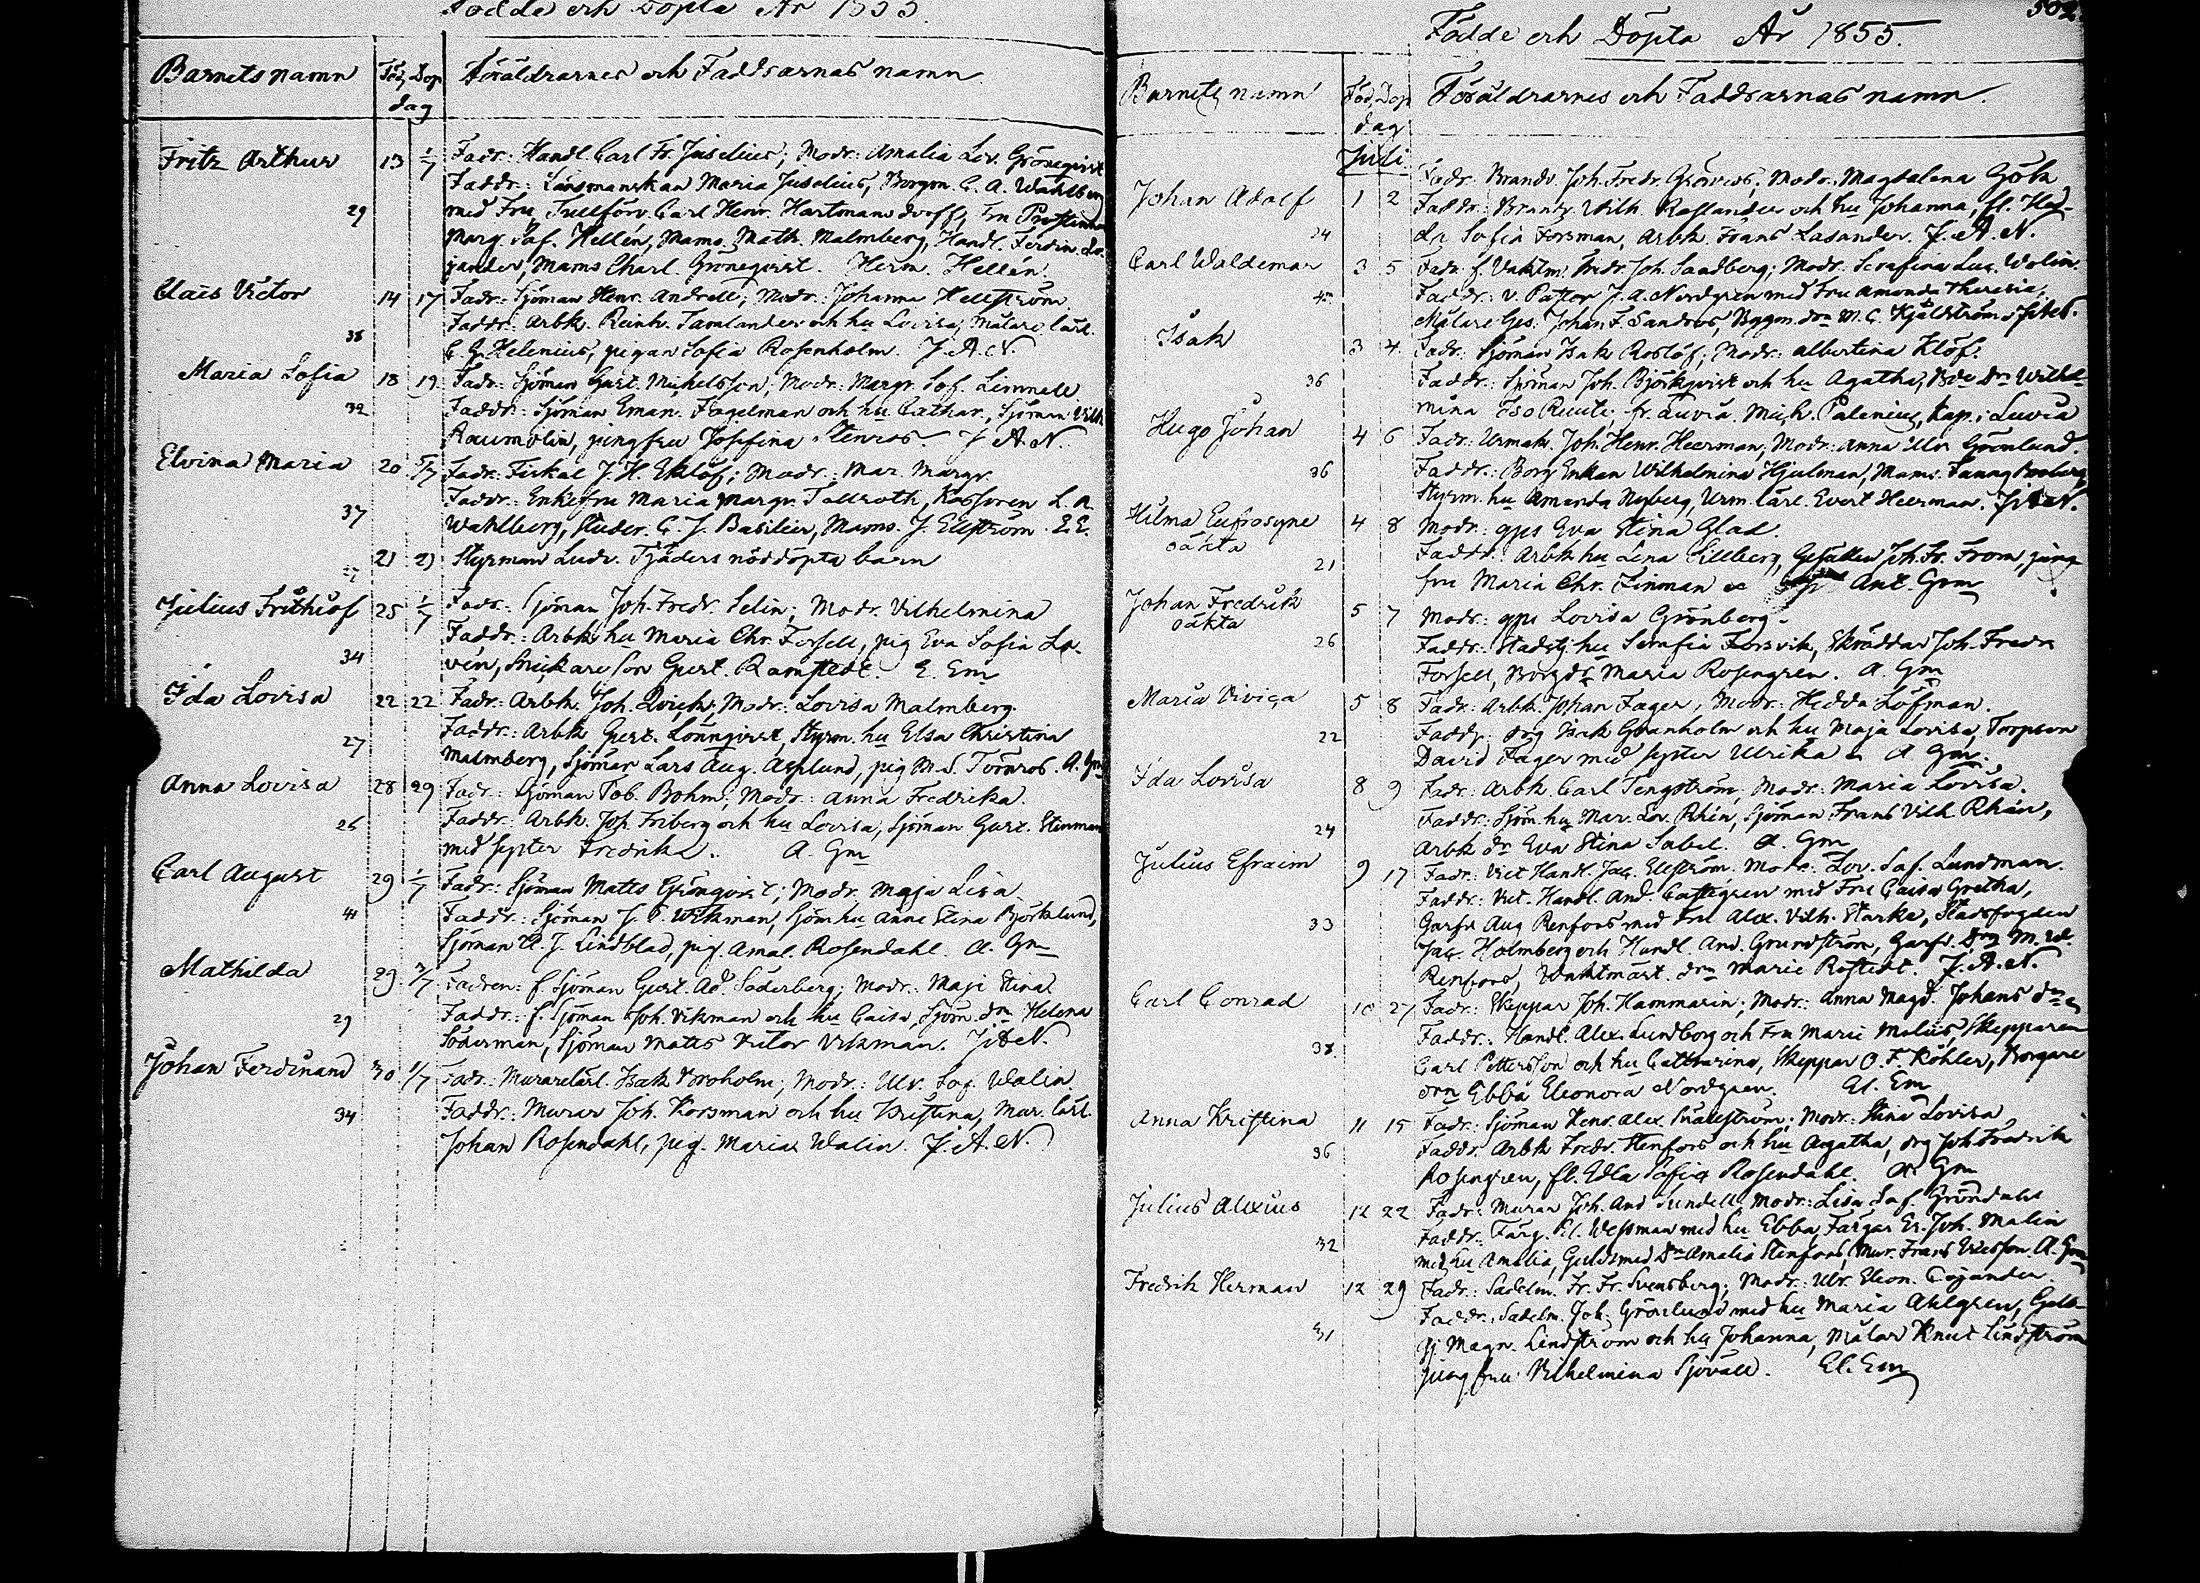 Födde och Döpta År 1855.
Barnets namn Föd Dop Föräldrarnes och Faddrarnas namn
dag
Fritz Arthur 13 1/7 Fadr: Handl. Carl Fr. Juselius; Modr: Amalia Lov. Grönqvist
Faddr: Länsmanskan Maria Juselius, Borgm. C. A. Wahlberg
29 med Fru, Tullförv. Carl Henr. Hartmansdorff, Fru
Marg. Sof. Hellén, Mams. Math. Malmberg, Handl. Ferdin.
jander, Mams Charl. Grönqvist. Herm. Hellén.
Claës Victor 14 17 Fadr: Sjöman Henr. Andrell; Modr: Johanna Hellström
Faddr: Arbk. Reinh. Tamlander och hu Lovisa, Målare lärl.
38 C. G. Helenius, pigan Sofia Rosenholm. J. A. N.
Maria Sofia 18 19 Fadr: Sjöman Gust. Michelsson; Modr: Margr. Sof. Limnell
32 Faddr: Sjöman Eman. Fagelman och hu Cathar., Sjöman Vilh.
Raumolin, jungfru Josefina Stenros J. A. N.
Elvina Maria 20 5/7 Fadr: Fiskal J. H. Eklöf; Modr: Mar. Margr.
Faddr: Enkefru Maria Margr. Tallroth, Kassören L. A.
37 Wahlberg, Studer. C. J. Basilier, Mams. J. Ellström. E. E.
27 21 21 Styrman Ludv. Tjäders nöddöpta barn
Julius Frithiof 25 1/7 Fadr: Sjöman Joh. Fredr. Selin; Modr. Vilhelmina
Faddr: Arbk hu Maria Chr. Forsell, pig Eva Sofia Lo-
34 vén, Snickare son Gust. Ramstedt. E. Em
Ida Lovisa 22 22 Fadr: Arbk. Joh. Qvick; Modr: Lovisa Malmberg.
27 Faddr: Arbk Gust. Lönnqvist, Styrm. hu Elsa Christina
Malmberg, Sjöman Lars Aug. Asplund, pig M. S. Törnros. A. Gm
Anna Lovisa 28 29 Fadr: Sjöman Tob. Bohm; Modr: Anna Fredrika.
26 Faddr: Arbk. Joh. Friberg och hu Lovisa, Sjöman Gust. Stenman
med syster Fredrika. A. Gm
Carl August 29 1/7 Fadr: Sjöman Matts Grönqvist; Modr. Maja Lisa
41 Faddr: Sjöman J. E. Wikman, Sjöm hu Anna Stina Björklund,
Sjöman A. J. Lindblad, pig. Amal. Rosendahl. A. Gm
Mathilda 29 2/7 Fadren: f. Sjöman Gust. Ad. Söderberg; Modr: Maja Stina
29 Faddr: f. Sjöman Joh. Vikman och hu Caisa, Sjöm. drn Helena
Söderman, Sjöman Matts Victor Vikman. J. A. N.
Johan Ferdinand 30 1/7 Fadr: Murarelärl. Isak Broholm; Modr: Ulr. Sof. Walin
34 Faddr: Murar Joh. Korsman och hu Kristina, Mur. lärl.
Johan Rosendahl, pig. Maria Walin. J. A. N.
502.
Födde och Döpta År 1855.
Barnets namn Föd Dop Föräldrarnes och Faddrarnas namn.
dag
Juli
Fadr: Brandv. Joh. Fredr. Grönroos; Modr: Magdalena Götz
Johan Adolf 1 2 Faddr: Brandv. Wilh. Roslander och hu Johanna, fl.
24 Sofia Forsman, Arbk. Frans Lasander. J. A. N.
Carl Waldemar 3 5 Fadr: f. Vaktm. Fredr. Joh. Sandberg; Modr: Serafina Lov. Walin.
Faddr: v. Pastor J. A. Nordgren med Fru Amanda Theresia,
Målare Ges. Johan F. Sandroos, Byggm. drn M. C. Kjällström. J. A. N.
Isak 3 4 Fadr: Sjöman Isak Roslöf; Modr: Albertina Klöf.
36 Faddr: Sjöman Joh. Björkqvist och hu Agatha, Bde Drn Wilhel-
mina Iso Ruuti, fr. Luvia. Mich. Palenius, Kap. i Luvia
Hugo Johan 4 6 Fadr: Urmak. Joh. Henr. Heerman; Modr: Anna Ulr. Grönlund.
36 Faddr: Borg. Enkan Wilhelmina Hjulman, Mams. Fanny
Styrm. hu Amanda Nyberg, Urm. lärl. Evert Heerman. J. A. N.
Hilma Eufrosyne 4 8 Modr: gps Eva Stina Glad.
oäkta
21 Faddr: Arbk hu Lena Sillberg, Gesällen Joh. Fr. From, jung
fru Maria Chr. Finman Ant. Gm
Johan Fredrik 5 7 Modr: gps Lovisa Grönberg.
oäkta
26 Faddr: Stadstj. hu Serafia Forsvik, Skräddar Joh. Fredr
Forsell, Borgdr Maria Rosengren. A. Gm
Maria Viviça 5 8 Fadr: Arbk. Johan Fager; Modr: Hedda Löfman.
22 Faddr: drg Isak Granholm och hu Maja Lovisa, Torpson
David Fager med syster Ulrika A Gm.
Ida Lovisa 8 9 Fadr: Arbk. Carl Tengström; Modr: Maria Lovisa.
24 Faddr: Sjöm. hu Mar. Lov. Rhén, Sjöman Frans Vilh. Rhén,
Arbk dr Eva Stina Sabel. A. Gm
Julius Efraim 9 17 Fadr: Vict. Handl. Jac. Ellström. Modr: Lov. Sof. Lundman.
Faddr: Vict. Handl. And. Castegren med Fru Caisa Gretha,
33 Garfv. Aug Renfors med Fru Alex. Vilh. Starke, Stadsfogden
Jac. Holmberg och Handl. And. Grundström, Garfv. Drn M. W.
Renfors, Waktmäst. drn Marie Rostedt. J. A. N.
Carl Conrad 10 27 Fadr: Skeppar Joh. Hammarin; Modr: Anna Magd. Johans dr
38 Faddr: Handl. Alex. Lundborg och Fru Marie Malin, Skepparen
Carl Pettersson och hu Catharina, Skeppar O. F. Köhler, Borgare
drn Ebba Eleonora Nordgren. El. Em
Anna Kristina 11 15 Fadr: Sjöman Henr. Alex. Snällström; Modr: Stina Lovisa
36 Faddr: Arbk Fredr. Stenfors och hu Agatha, drg Joh. Fredrik
Rosengren, fl. Edla Sofia Rosendahl. A. Gm
Julius Alexius 12 22 Fadr: Murar Joh. And Sundell; Modr: Lisa Sof. Gröndahl
32 Faddr: Färg. El. Wessman med hu Ebba, Färgar Er. Joh. Malin
med hu Amalia, Guldsmed Drn Amalia Stenfors, Mur. Frans Ericsson. A. Gm
Fredrik Herman 12 29 Fadr: Sadelm. Fr. Fr. Svensberg; Modr: Ulr. Eleon. Cajander.
31 Faddr: Sadelm. Joh. Grönlund med hu Maria Ahlgren, Gelb-
gj. Magn. Lindström och hu Johanna, Målar Knut Lindström
jungfru Vilhelmina Sjövall. El. Em